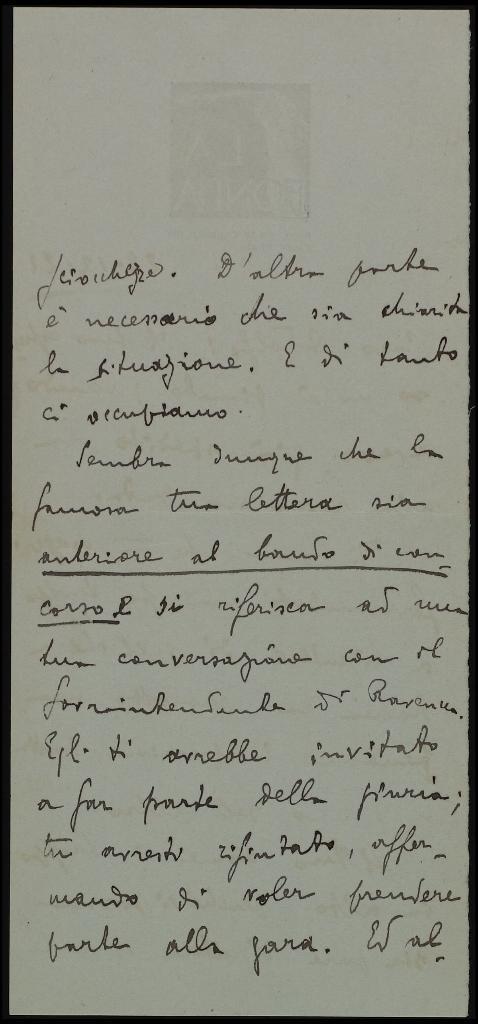 sciocchezze. D'altra parte
è necessario che sia chiarita
la situazione. E di tanto
ci occupiamo.
Sembra dunque che la
famosa tua lettera sia
anteriore al bando di con-
corso e si riferisca ad una
tua conversazione con il
sovraintendente di Ravenna.
Egli ti avrebbe invitato
a far parte della giuria;
tu avresti rifiutato, affer-
mando di voler prendere
parte alla gara. Ed al-